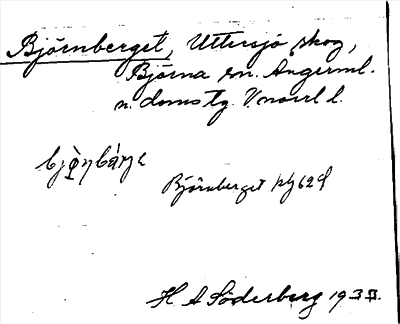 Björnberget, Uttersjö skog,
Björna sn. Ångerml.
n. domstg. V.norrl l.
Björnberget
H A Söderberg 193